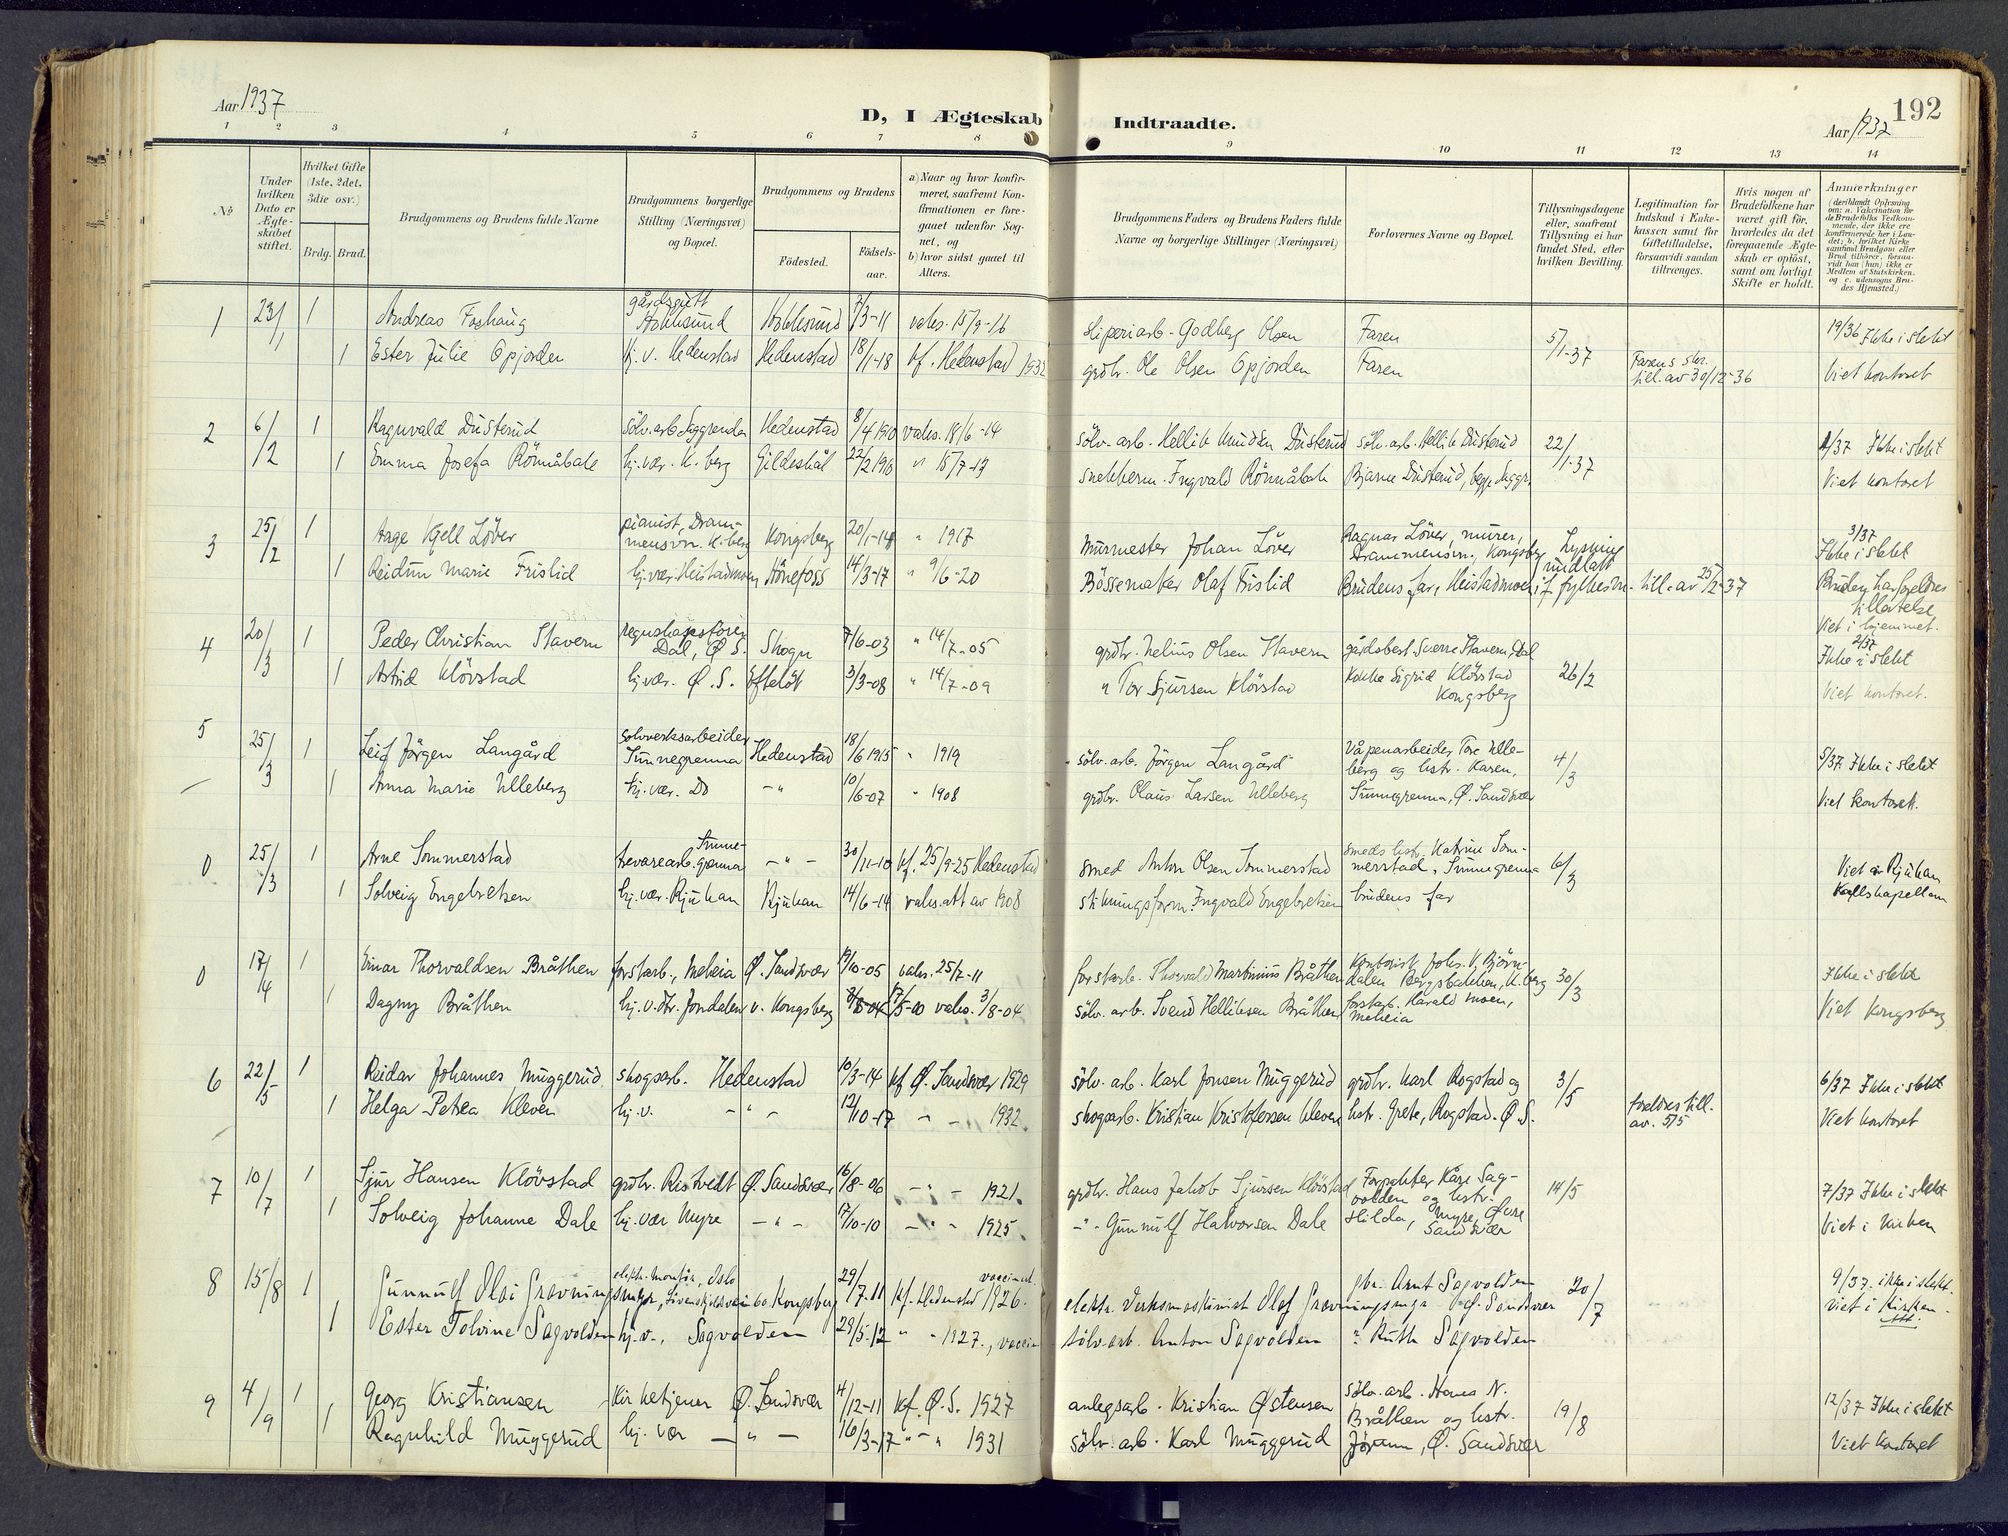 Aar 1937
D, I Ægteskab
Indtraadte.
Aar 1937
192
1 2 3 4 5 6 7 8
9 10 11 12 13 14
No
Under hvilken Dato er Ægteskabet stiftet.
Hvilket Gifte (1ste, 2det, 3die osv.)
Brdg. Brud.
Brudgommens og Brudens fulde Navne
Brudgommens borgerlige Stilling (Næringsvei) og Bopæl.
Brudgommens og Brudens
Födested.
Födsels-aar.
a) Naar og hvor konfirmeret, saafremt Konfirmationen er foregaaet udenfor Sognet, og
b) hvor sidst gaaet til Alters.
Brudgommens Faders og Brudens Faders fulde Navne og borgerlige Stillinger (Næringsvei)
Forlovernes Navne og Bopæl.
Tillysningsdagene eller, saafremt Tillysning ei har fundet Sted, efter hvilken Bevilling.
Legitimation for Indskud i Enkekassen samt for Giftetilladelse, forsaavidt saadan tiltrænges.
Hvis nogen af Brudefolkene har været gift för, hvorledes da det foregaaende Ægteskab er oplöst, samt om lovligt Skifte er holdt.
Anmærkninger
(deriblandt Oplysning om: a. Vaccination for de Brudefolks Vedkommende, der ikke ere konfirmerede her i Landet; b. hvilket Kirkesamfund Brudgom eller Brud tilhörer, forsaavidt han (hun) ikke er Medlem af Statskirken, og c. udensogns Brudes Hjemsted.)
1 23/1 1 Andreas Foshaug gårdsgutt Hokksund Hokksund 7/3-11 vaks. 15/9-16 sliperiarb. Godberg Olsen Faren 5/1-37 19/36 Ikke i slekt
1 Ester Julie Opjorden hj. v. Hedenstad Hedenstad 18/1-18 kf. Hedenstad 1932 grdbr. Ole Olsen Opjorden Faren Farens skr. till. av 30/12-36 Viet kontoret
2 6/2 1 Ragnvald Dusterud sölv. arb. Saggrenda Hedenstad 8/4 1910 vaks. 18/6-14 sölv. arb. Hellik Knudsen Dusterud sölv. arb. Hellik Dusterud 22/1-37 1/37 Ikke i slekt
1 Emma Josefa Rönnåbakk hj. vær. K.berg Gildeskål 22/2 1916 " 15/7-17 snekkerm. Ingvald Rönnåbakk Bjarne Dusterud, begge Saggr. Viet kontoret
3 25/2 1 Aage Kjell Löver pianist, Drammensvn. K.berg Kongsberg 20/1-14 " 1917 Murmester Johan Löver Ragnar Löver, murer, Drammensvn., Kongsberg Lysning undlatt 3/37 Ikke i slekt
1 Reidun Marie Frislid hj. vær. Heistadmoen Hönefoss 14/3-17 " 9/6-20 Bössemaker Olaf Frislid Brudens far, Heistadmoen if fylkesm. till. av 25/2-37 Bruden har foreldres tillatelse Viet i hjemmet.
4 20/3 1 Peder Christian Stavern regnskapsförer Dal, Ø. S. Skogn 7/6-03 " 14/7-05 grdbr. Nelius Olsen Stavern gårdsbest. Sverre Stavern, Dal 26/2 2/37 Ikke i slekt
1 Astrid Klövstad hj. vær. Ø. S. Efteløt 3/3-08 " 14/7-09 " Tor Sjursen Klövstad Kokke Sigrid Klövstad Kongsberg Viet kontoret.
5 25/3 1 Leif Jörgen Langård Sölvverksarbeider Sunnegrenna Hedenstad 18/6 1915 " 1919 sölv. arb. Jörgen Langård Våpenarbeider Tore Ulleberg og hstr. Karen, Sunnegrenna, Ø. Sandsvær 4/3 5/37. Ikke i slekt
1 Anna Marie Ulleberg hj. vær. Do - " 10/6-07 " 1908 grdbr. Olaus Larsen Ulleberg Viet kontoret.
0 25/3 1 Arne Sommerstad trevarearb. Sunnegrenna - " - 30/11-10 kf. 25/9-25 Hedenstad smed Anton Olsen Sommerstad smeds hstr. Katrine Sommerstad, Sunnegrenna 6/3 Viet i Rjukan
1 Solveig Engebretsen hj. vær. Rjukan Rjukan 14/6-14 vaks. att av 1908 stikningsform. Ingvald Engebretsen brudens far
0 17/4 1 Einar Thorvaldsen Bråthen forstarb., Meheia Ø. Sandsvær 19/10-05 vaks. 25/7-11 forstarb. Thorvald Martinius Bråthen Kontorist Johs. V. Björndalen Bergsbakken, K.berg 30/3 Ikke i slekt
1 Dagny Bråthen hj. v. dtr. Jondalen v. Kongsberg 17/5-00 vaks. 3/8-04 sölv. arb. Svend Helliksen Bråthen forstarb. Harald Moen, Meheia Viet Kongsberg
6 22/5 1 Reidar Johannes Muggerud skogsarb. Hedenstad 10/3-14 kf Ø. Sandsvær 1929 sölv. arb. Karl Jonsen Muggerud grdbr. Karl Rogstad og 3/5 6/37 Ikke i slekt
1 Helga Petra Kleven hj. v. - " - 12/10-17 " - 1932. skogsarb. Kristian Kristofersen Kleven hstr. Grete, Rogstad. Ø S. foreldres till. av. 5/5 Viet kontoret
7 10/7 1 Sjur Hansen Klövstad grdbr. Ristvedt Ø. Sandsvær 16/8-06 - " - 1921. grdbr. Hans Jakob Sjursen Klövstad Forpakter Kåre Sagvolden og hstr. Hilda, Myre, Øvre Sandsvær 14/5 7/37 Ikke i slekt
1 Solveig Johanne Dale hj. vær Myre - " - 17/10-10 - " - 1925. - " - Gunnulf Halvorsen Dale Viet i kirken
8 15/8 1 Gunnulf Olai Gravningsmyr, elektr. montör, Oslo Kongsberg 29/7-11 kf. Hedenstad 1926. vaccinert. elektr. verksmaskinist Olaf Gravningsmyr gbr. Arnt Sagvolden Ø. Sandsvær 20/7 9/37. ikke i slekt. viet i Kirken.
1 Ester Tolvine Sagvolden hj. v., Sagvolden 29/5-12 " " 1927., vaccin sölv. arb. Anton Sagvolden " Ruth Sagvolden
9 4/9 1 Georg Kristiansen Kirketjener Ø. Sandsvær 4/12-11 kf. Ø. S. 1927 anlegsarb. Kristian Østensen sölv. arb. Hans N. Bråthen og hstr. 19/8 12/37 Ikke i slekt
1 Ragnhild Muggerud hj. vær - " - 16/3-17 " - " 1931 sölv. arb. Karl Muggerud Jörann, Ø. Sandsvær Viet kontoret